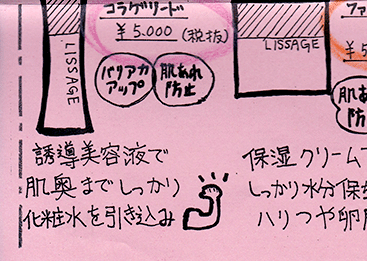 コラゲリード
¥5.000 (税抜)
LISSAGE
バリアカ
アップ
肌あれ
防止
誘導美容液で
肌奥までしっかり
化粧水を引き込み
ファ
¥5
LISSAGE
肌あ
防
保湿クリームで
しっかり水分保
ハリつや卵